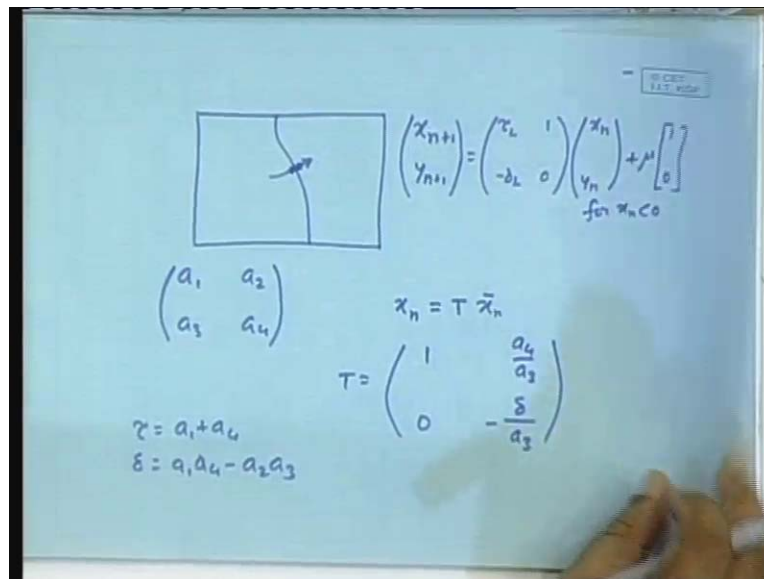 © CET
I.I.T. KGP
( x_{n+1} y_{n+1} ) = ( τ_L 1 -δ_L 0 ) ( x_n y_n ) + μ [ 1 0 ]
for x_n < 0
( a_1 a_2 a_3 a_4 )
x_n = T x̄_n
T = ( 1 a_4/a_3 0 -δ/a_3 )
τ = a_1 + a_4
δ = a_1 a_4 - a_2 a_3